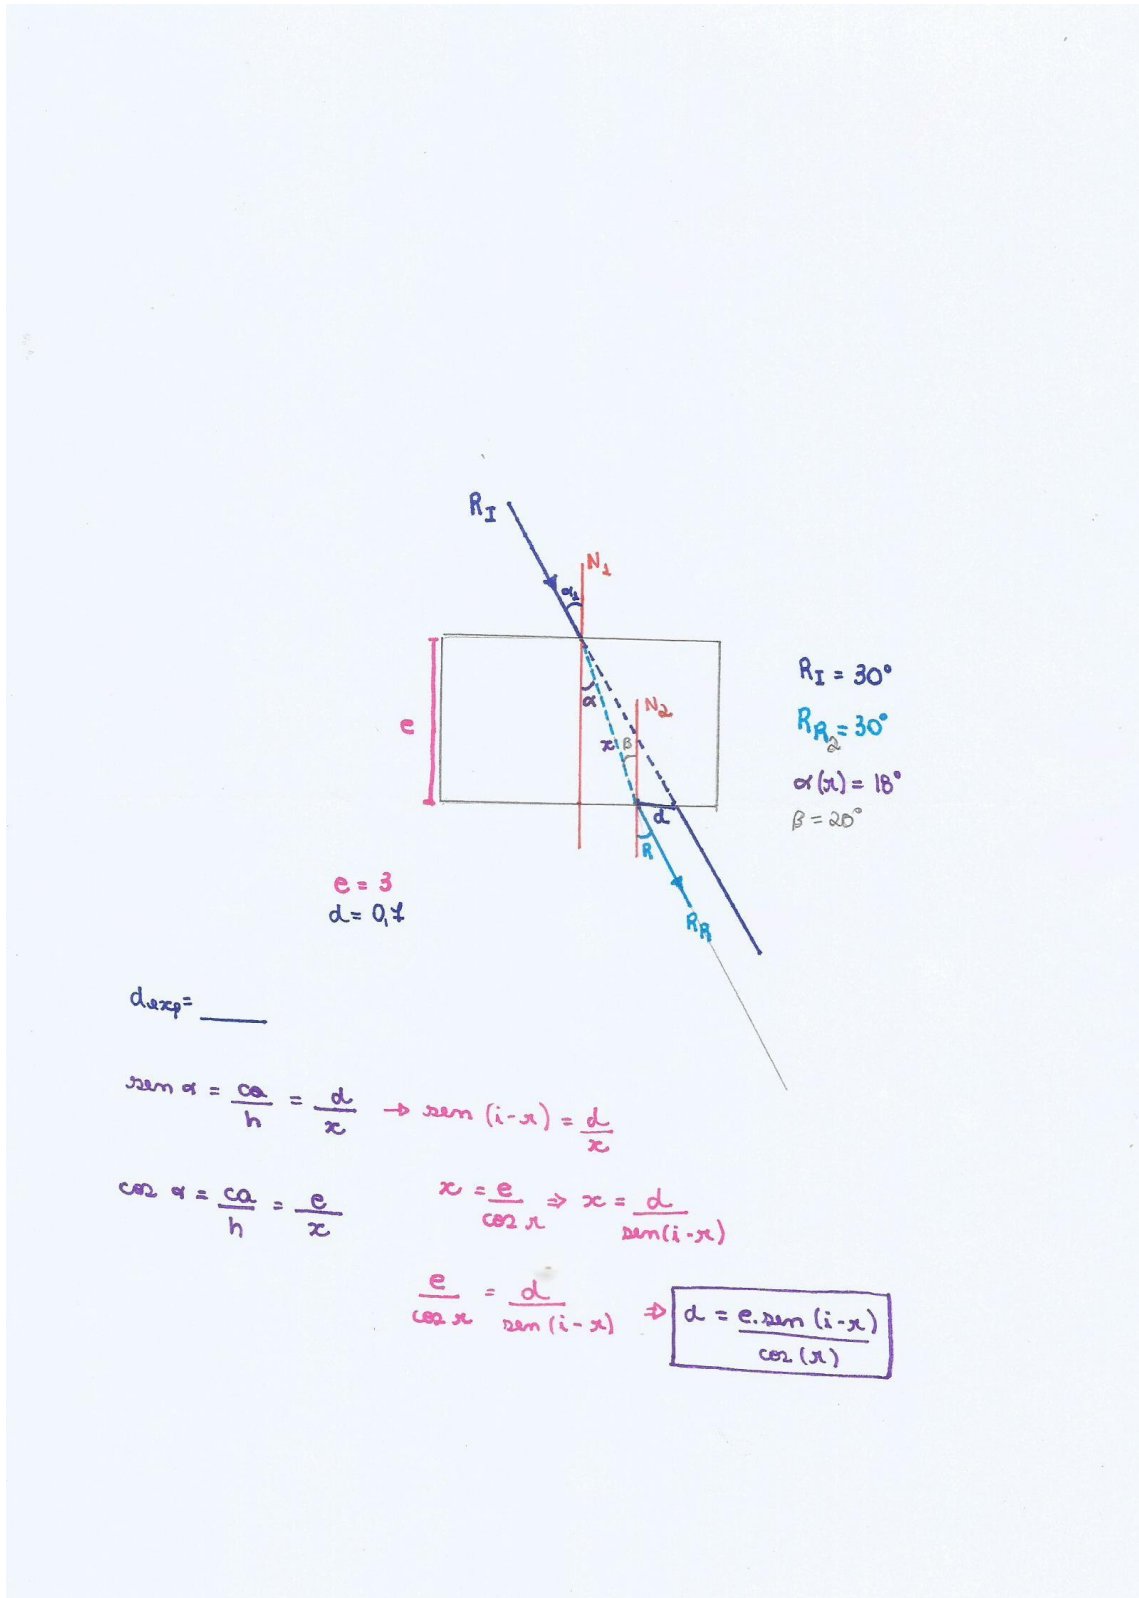 R_I
N_1
α_1
α
N_2
e
x
β
d
R
R_R
R_I = 30°
R_R_2 = 30°
α(r) = 18°
β = 20°
e = 3
d = 0,7
d_exp = ____
sen α = ca/h = d/x → sen (i-r) = d/x
cos α = ca/h = e/x
x = e/cos r ⇒ x = d/sen(i-r)
e/cos r = d/sen(i-r) ⇒ d = e.sen(i-r)/cos(r)